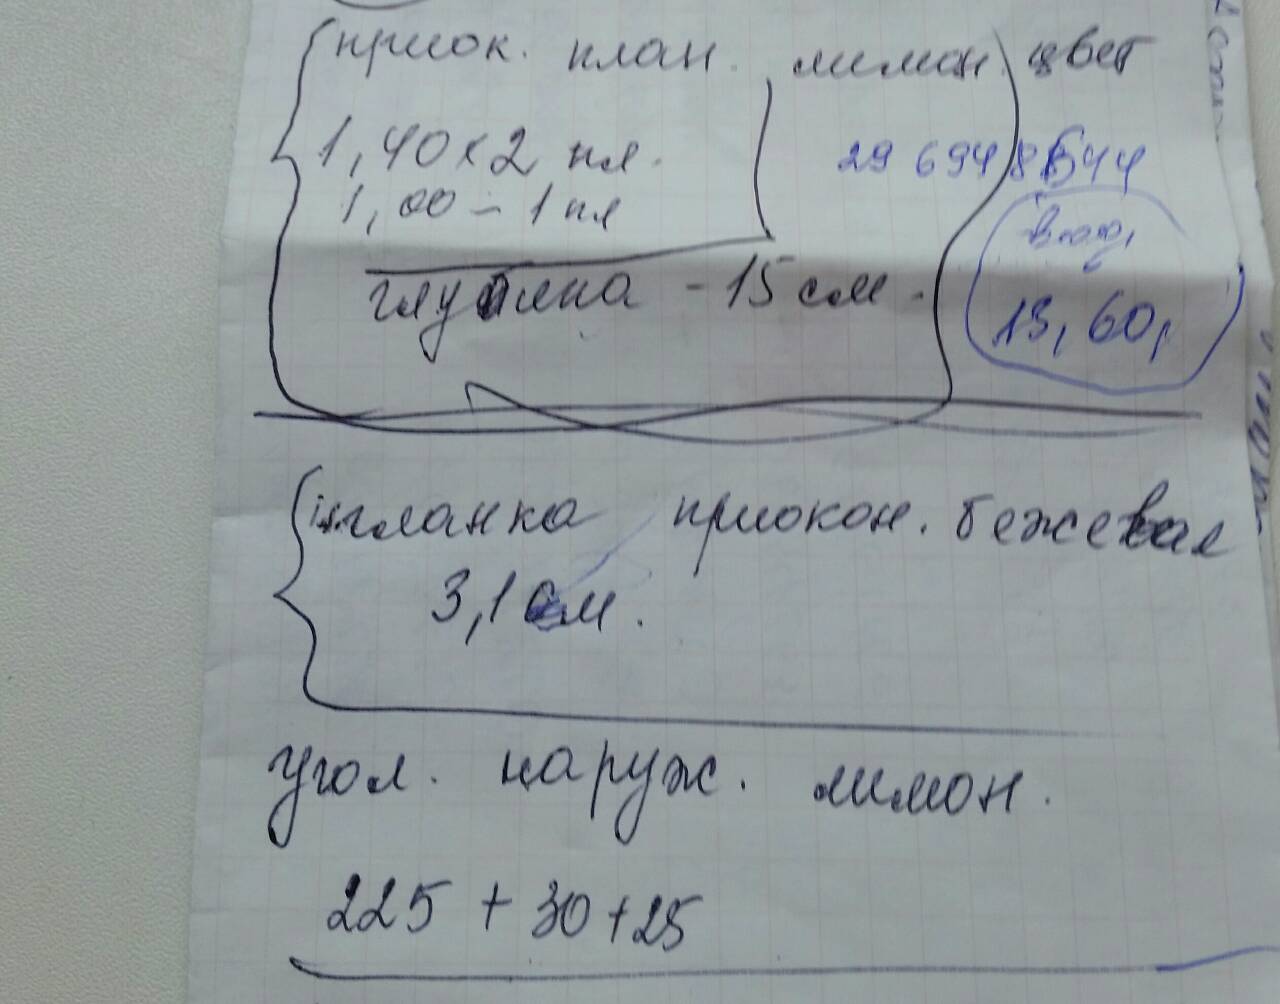 приок. план. лимон. цвет
1,40 х 2 пл.
29 694 8544
1,00 – 1 пл
глубина - 15 см.
13,60,
планка приокон. бежевая
3,1 см.
угол. наруж. лимон.
225 + 30 + 25